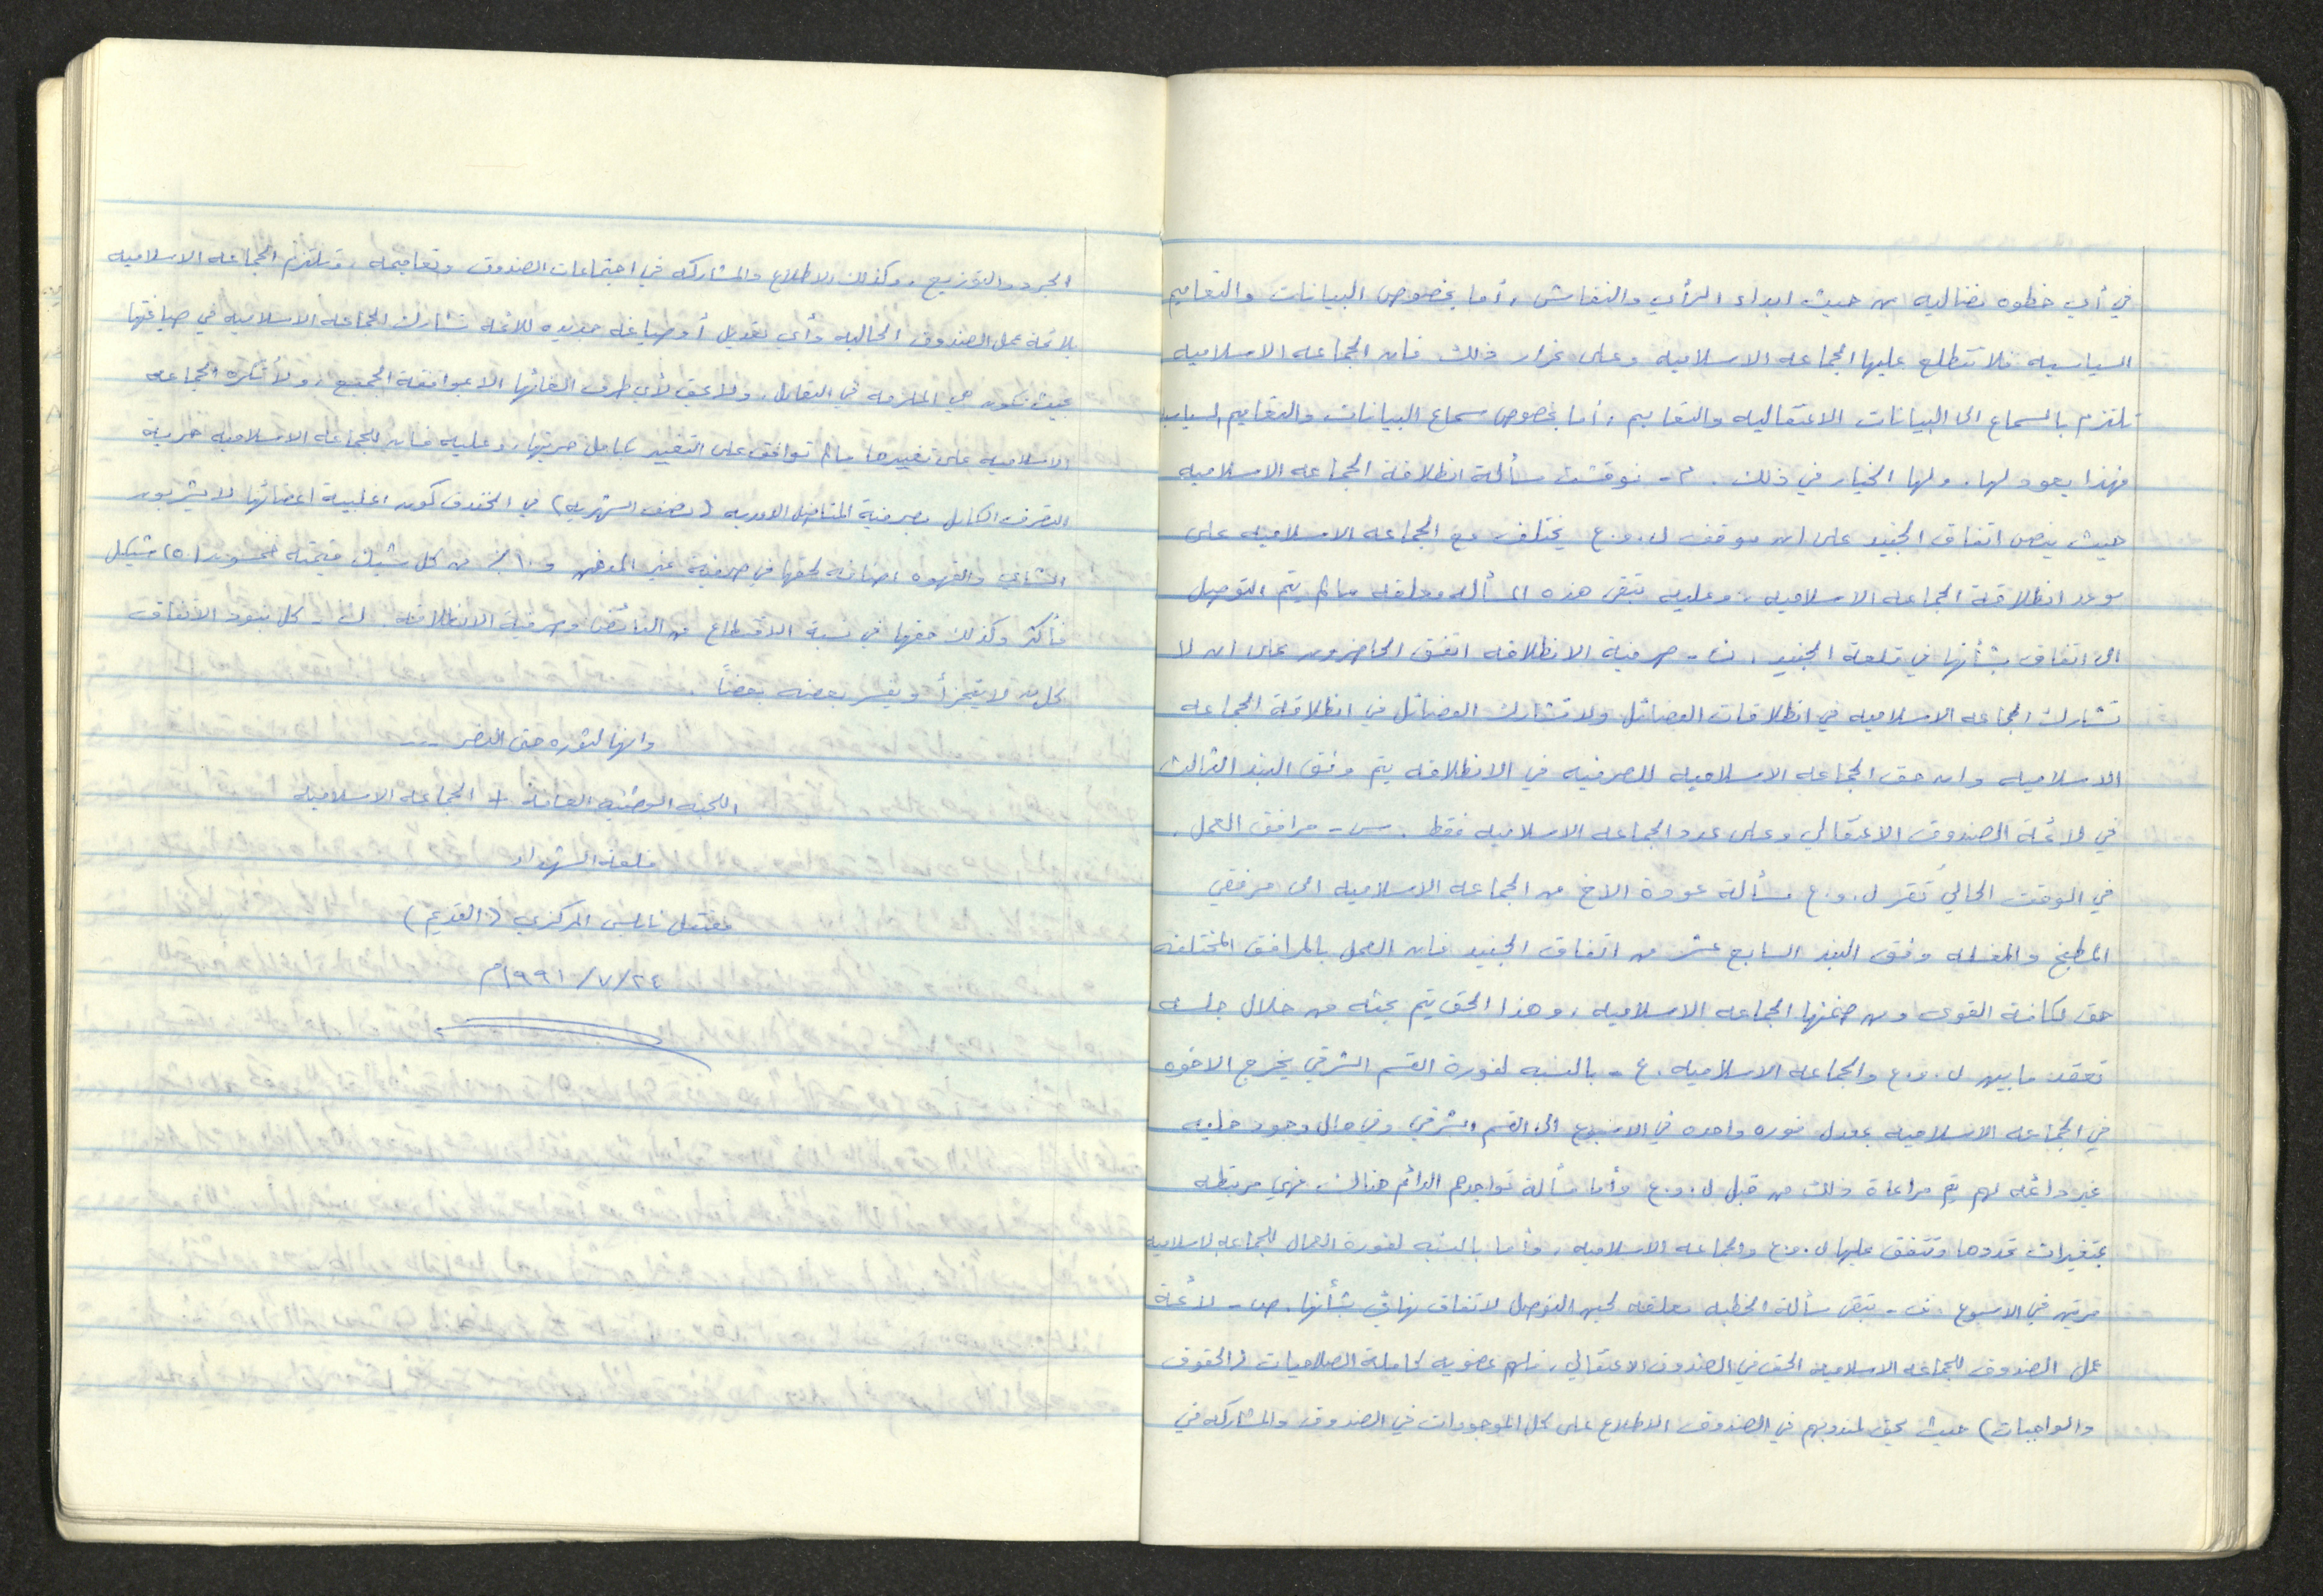 في أي خطوه نضاليه من حيث ابداء الرأي والنقاش ، أما بخصوص البيانات والتعاميم
السياسيه فلا تتطلع عليها الجماعه الاسلاميه وعلى غرار ذلك فان الجماعه الاسلاميه
تلتزم بالسماع الى البيانات الاعتقاليه والتعاميم ، أما بخصوص سماع البيانات والتعاميم السياسيه
فهذا يعود لها . ولها الخيار في ذلك . م - نوقشت مسألة انطلاقة الجماعه الاسلاميه
حيث ينص اتفاق الجنيد على ان موقف ل.و.ع يختلف مع الجماعه الاسلاميه على
موعد انطلاقة الجماعه الاسلاميه ، وعليه تبقى هذه المسأله معلقه ما لم يتم التوصل
الى اتفاق بشأنها في قلعة الجنيد . ن - صرفية الانطلاقه اتفق الحاضرون على ان لا
تشارك الجماعه الاسلاميه في انطلاقات الفصائل ولا تشارك الفصائل في انطلاقة الجماعه
الاسلاميه وان حق الجماعه الاسلاميه للصرفيه في الانطلاقه يتم وفق البند الثالث
في لائحة الصندوق الاعتقالي وعلى عدد الجماعه الاسلاميه فقط . س - مرافق العمل .
في الوقت الحالي تقر ل.و.ع مسألة عودة الاخ من الجماعه الاسلاميه الى مرفقي
المطبخ والمغسله وفق البند السابع عشر من اتفاق الجنيد فان العمل بالمرافق المختلفه
حق لكافة القوى ومن ضمنها الجماعه الاسلاميه ، وهذا الحق يتم بحثه من خلال جلسه
تعقد ما بين ل.و.ع والجماعه الاسلاميه . ع - بالنسبه لفورة القسم الشرقي يخرج الاخوه
في الجماعه الاسلاميه بمعدل فوره واحده في الاسبوع الى القسم الشرقي وفي حال وجود خليه
غير دائمه لهم يتم مراعاة ذلك من قبل ل.و.ع وأما مسألة تواجدهم الدائم هنالك فهي مرتبطه
بمتغيرات تحددها وتتفق عليها ل.و.ع والجماعه الاسلاميه ، وأما بالنسبه لفورة العمال للجماعه الاسلاميه
مرتين في الاسبوع . ف - تبقى مسألة الخطبه معلقه لحين التوصل لاتفاق نهائي بشأنها . ص - لائحة
عمل الصندوق للجماعه الاسلاميه الحق في الصندوق الاعتقالي ، فلهم عضويه كاملة الصلاحيات (الحقوق
والواجبات) حيث يحق لمندوبهم في الصندوق الاطلاع على كل الموجودات في الصندوق والمشاركه في
الجرد والتوزيع ، وكذلك الاطلاع والمشاركه في اجتماعات الصندوق وتعاميمه ، وتلتزم الجماعه الاسلاميه
بلائحة عمل الصندوق الحاليه وأي تعديل أو صياغه جديده للائحه تشارك الجماعه الاسلاميه في صياغتها
بحيث تكون هي الملزمه في التعامل ، ولا يحق لأي طرف الغائها الا بموافقة الجميع ، ولا تكره الجماعه
الاسلاميه على تغييرها ما لم توافق على التغيير بكامل حريتها ، وعليه فان للجماعه الاسلاميه حرية
التصرف الكامل بصرفية الدوريه (نصف الشهريه) في الخندق كون اغلبية اعضائها لا يشربون
الشاي والقهوه اضافه لحقها في صرفية غير المدخن و ١٠٪ من كل شيك قيمته خمسون (٥٠) شيكل
فأكثر وكذلك حقها في نسبة الاقتطاع من الفائض وصرفية الانطلاقه . ل - كل بنود الاتفاق
كل لا يتجزأ ويفسر بعضه بعضاً .
وانها لثوره حتى النصر ---
اللجنه الوطنيه العامة + الجماعه الاسلاميه
قلعة الشهداء
معتقل نابلس المركزي (القديم)
٢٤/٧/١٩٩١م